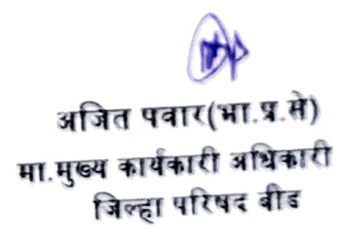 अजित पवार(भा.प्र.से)
मा.मुख्य कार्यकारी अधिकारी
जिल्हा परिषद बीड